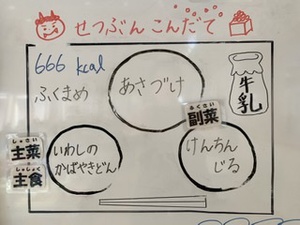 せつぶん こんだて
666 kcal
ふくまめ
あさづけ
牛乳
ふくさい
副菜
しゅさい
主菜
しゅしょく
主食
いわしの
かばやきどん
けんちん
じる